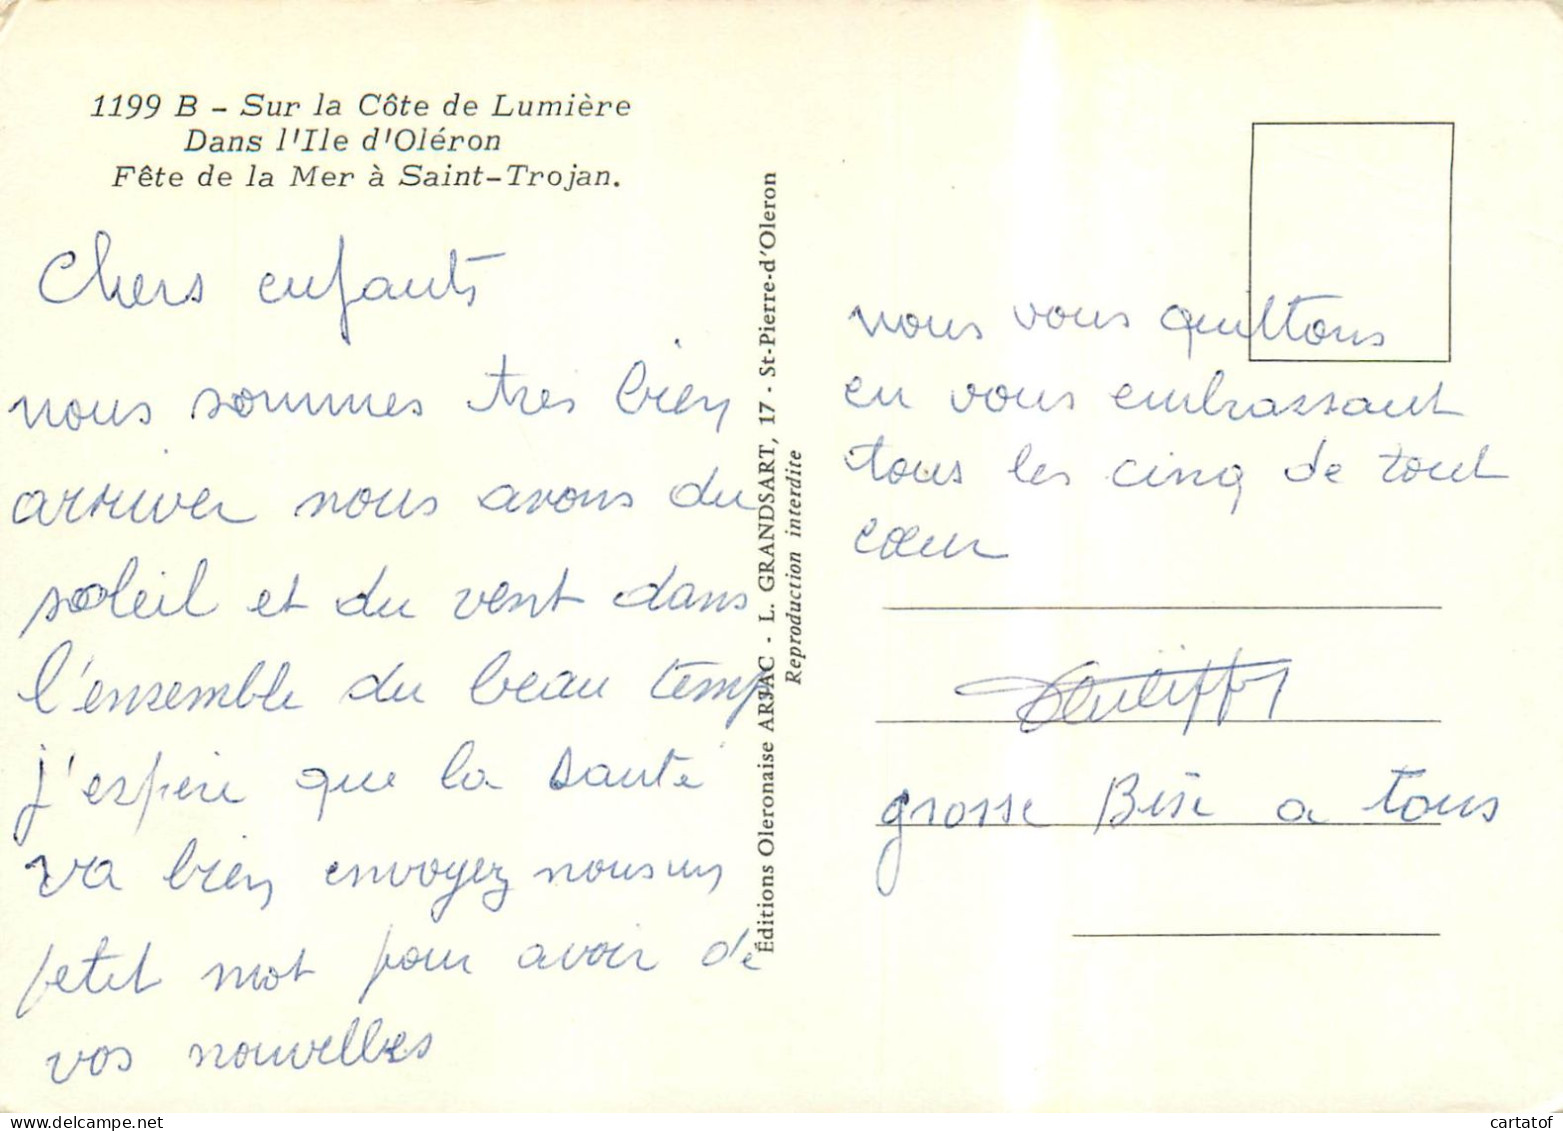 1199 B - Sur la Côte de Lumière
Dans l'Ile d'Oléron
Fête de la Mer à Saint-Trojan.
Chers enfants
nous sommes tres bien
arriver nous avons du
soleil et du vent dans
l'ensemble du beau temp
j'espère que la santé
va bien envoyez nous un
petit mot pour avoir de
vos nouvelles
Éditions Oleronaise ARJAC - L. GRANDSART, 17 - St-Pierre-d'Oleron
Reproduction interdite
nous vous quittons
en vous embrassant
tous les cinq de tout
cœur
grosse Bise a tous
cartatof